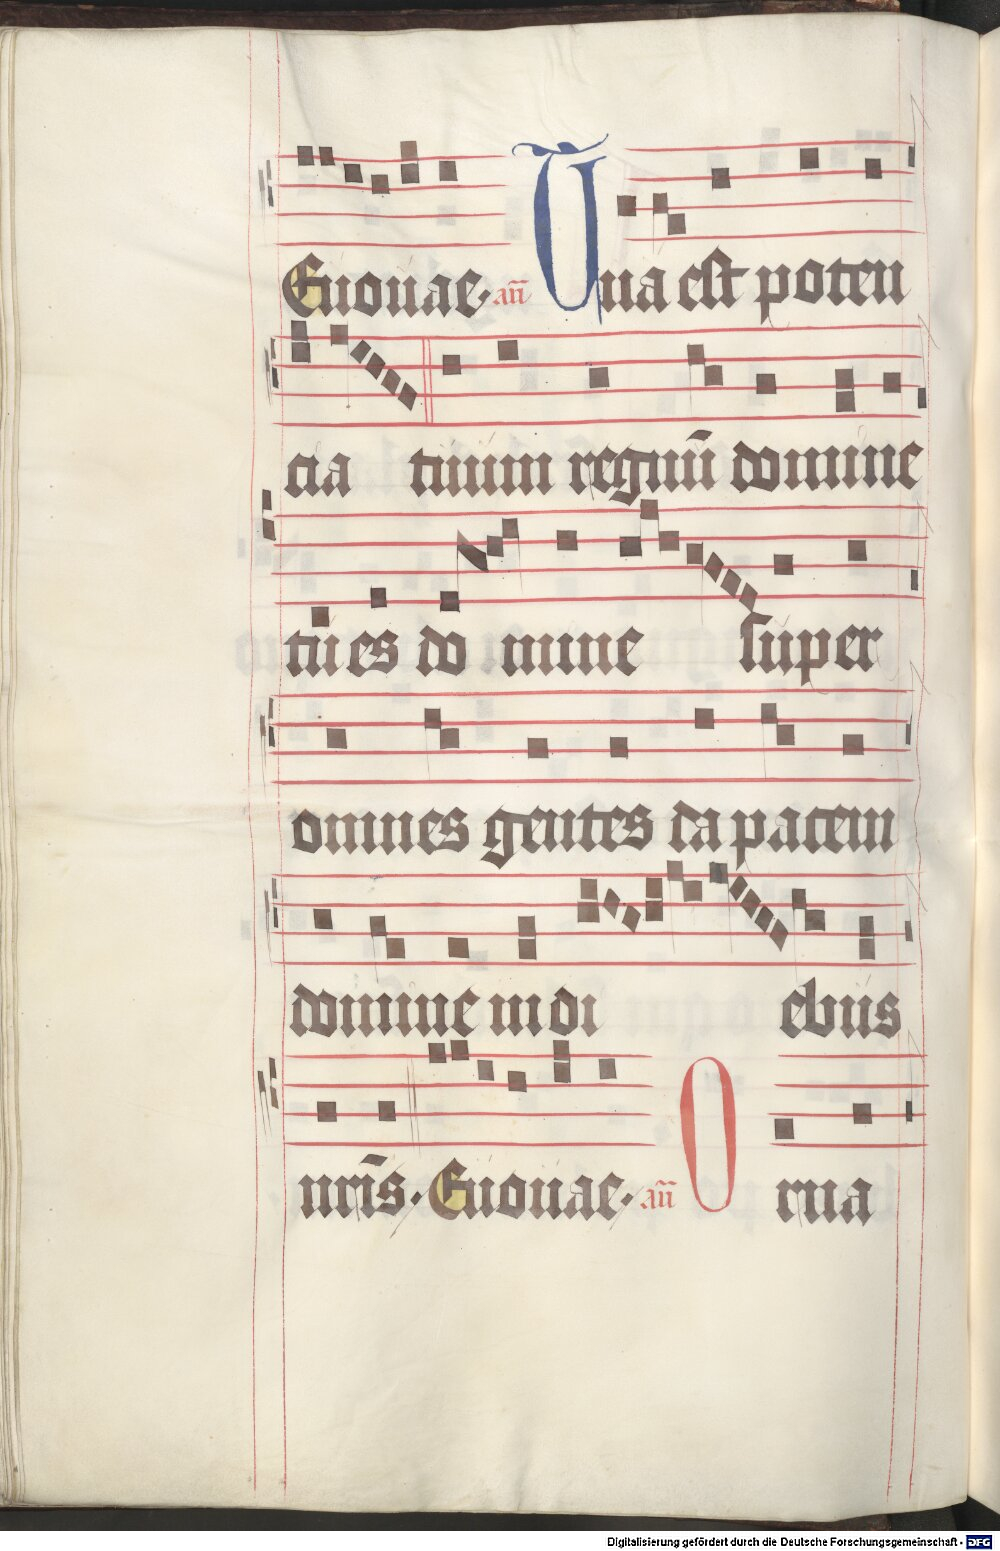 Euouae. an̄ Tua est poten
cia tuum regnū domine
tu es do mine super
omnes gentes da pacem
domine in di ebus
nrīs. Euouae. an̄ Orna
Digitalisierung gefördert durch die Deutsche Forschungsgemeinschaft - DFG